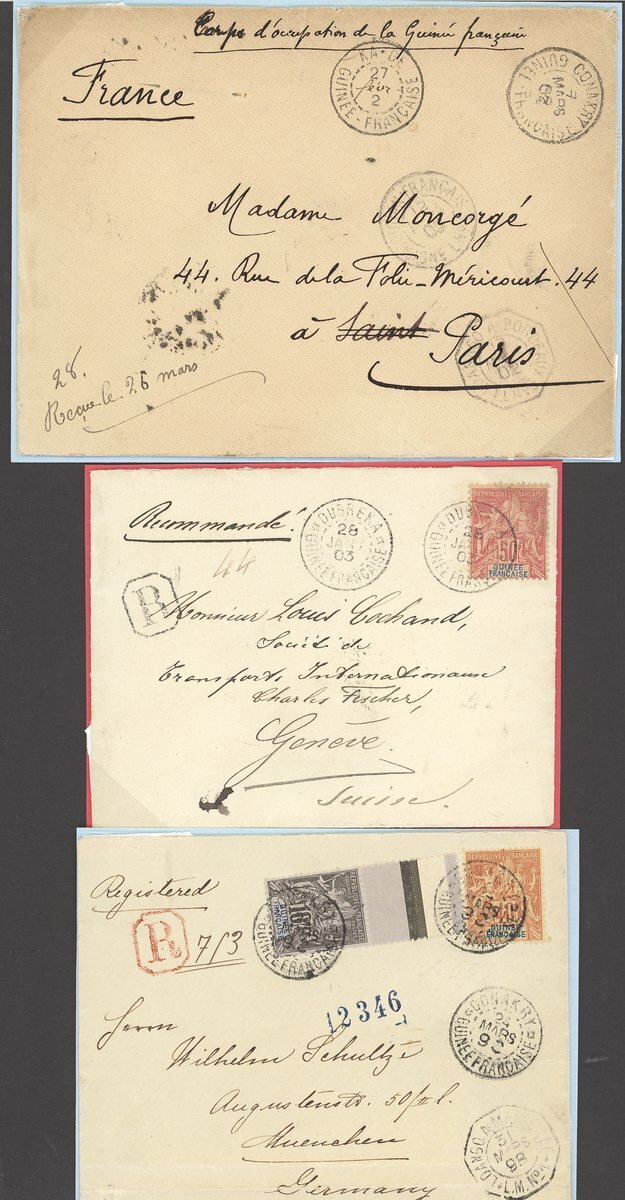 Corps d'occupation de la Guinée française
France
KADÉ
27
Févr
2
GUINÉE-FRANÇAISE
CONAKRY
7
MARS
02
GUINÉE FRANÇAISE
Madame Moncorgé
44. Rue de la Folie-Méricourt. 44
à Saint Paris
28.
Reçue le 26 mars
Recommandé.
DUBREKA
28
JANV
03
GUINÉE FRANÇAISE
DUBREKA
28
03
REPUBLIQUE FRANÇAISE
50
GUINÉE
FRANÇAISE
44
R
Monsieur Louis Cochand,
Société de
Transports Internationaux
Charles Fischer,
Genève.
Suisse.
Registered
R
713
GUINÉE FRANÇAISE
REPUBLIQUE FRANÇAISE
GUINÉE
FRANÇAISE
12346
CONAKRY
24
MARS
GUINÉE FRANÇAISE
Herrn
Wilhelm Schultze
Augustenstr. 50/II l.
Muenchen
Germany
LOANGO
L.M. No
98